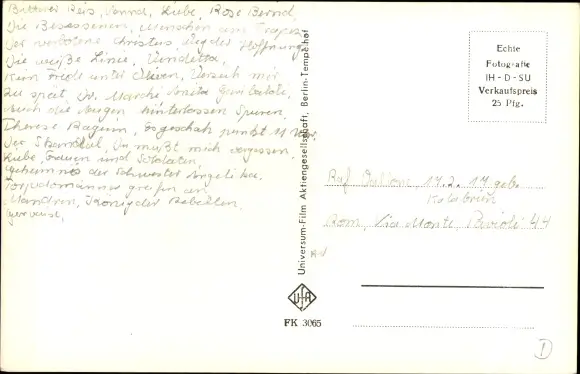 Bitterer Reis, Sonnd, Liebe, Rose Bernd,
Die Besessenen, Menschen am Trapez,
Der verbotene Christus, Weg der Hoffnung
Die weiße Linie, Vendetta,
Kein Friede unter Oliven, Verzeih mir
Zu spät Dr. Marchi Anita Garibaldi,
Auch die Augen hinterlassen Spuren,
Therese Raquin, Es geschah punkt 11 Uhr,
Der Skandal, Du mußt mich vergessen,
Liebe, Frauen und Soldaten,
Geheimnis der Schwester Angelika.
Torpedomänner greifen an
Mandrin, König der Rebellen,
Gervaise,
Universum-Film Aktiengesellschaft, Berlin-Tempelhof
UFA
FK 3065
Echte
Fotografie
IH - D - SU
Verkaufspreis
25 Pfg.
Raf Vallone, 17.2.17 geb.
Kalabrien
Rom, Via Monte Parioli 44
D